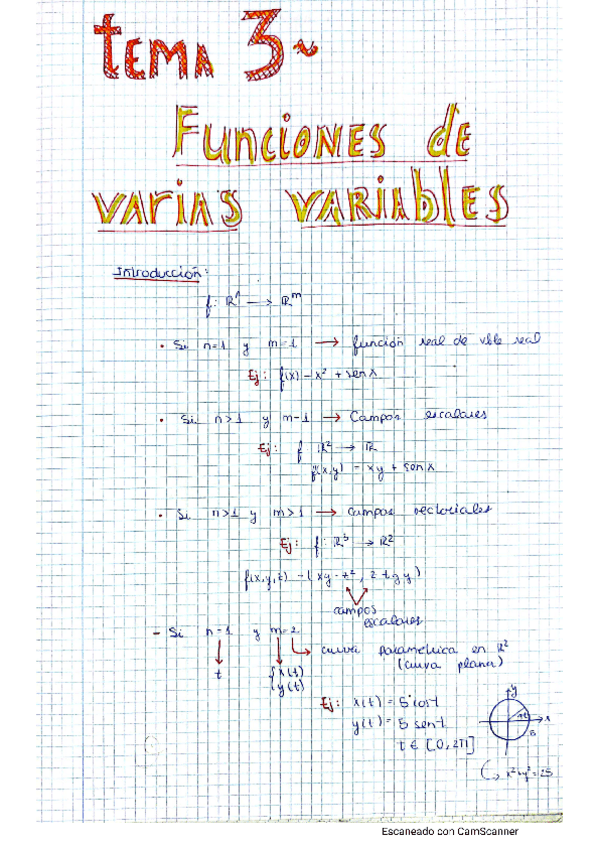 tema 3~
Funciones de
varias variables
Introducción:
f: ℝⁿ → ℝᵐ
• Si n=1 y m=1 → función real de vble real
Ej: f(x) = x² + sen x
• Si n>1 y m=1 → Campos escalares
Ej: f: ℝ² → ℝ
f(x,y) = xy + sen x
• Si n>1 y m>1 → campos vectoriales
Ej: f: ℝ³ → ℝ²
f(x,y,z) = (xy-z², 2 tg y)
campos
escalares
- Si n=1 y m=2
→ curva paramétrica en ℝ²
(curva plana)
t
{x(t)
{y(t)
Ej: x(t) = 5 cos t
y(t) = 5 sen t
t ∈ [0, 2π]
y
x
5
x²+y²=25
Escaneado con CamScanner